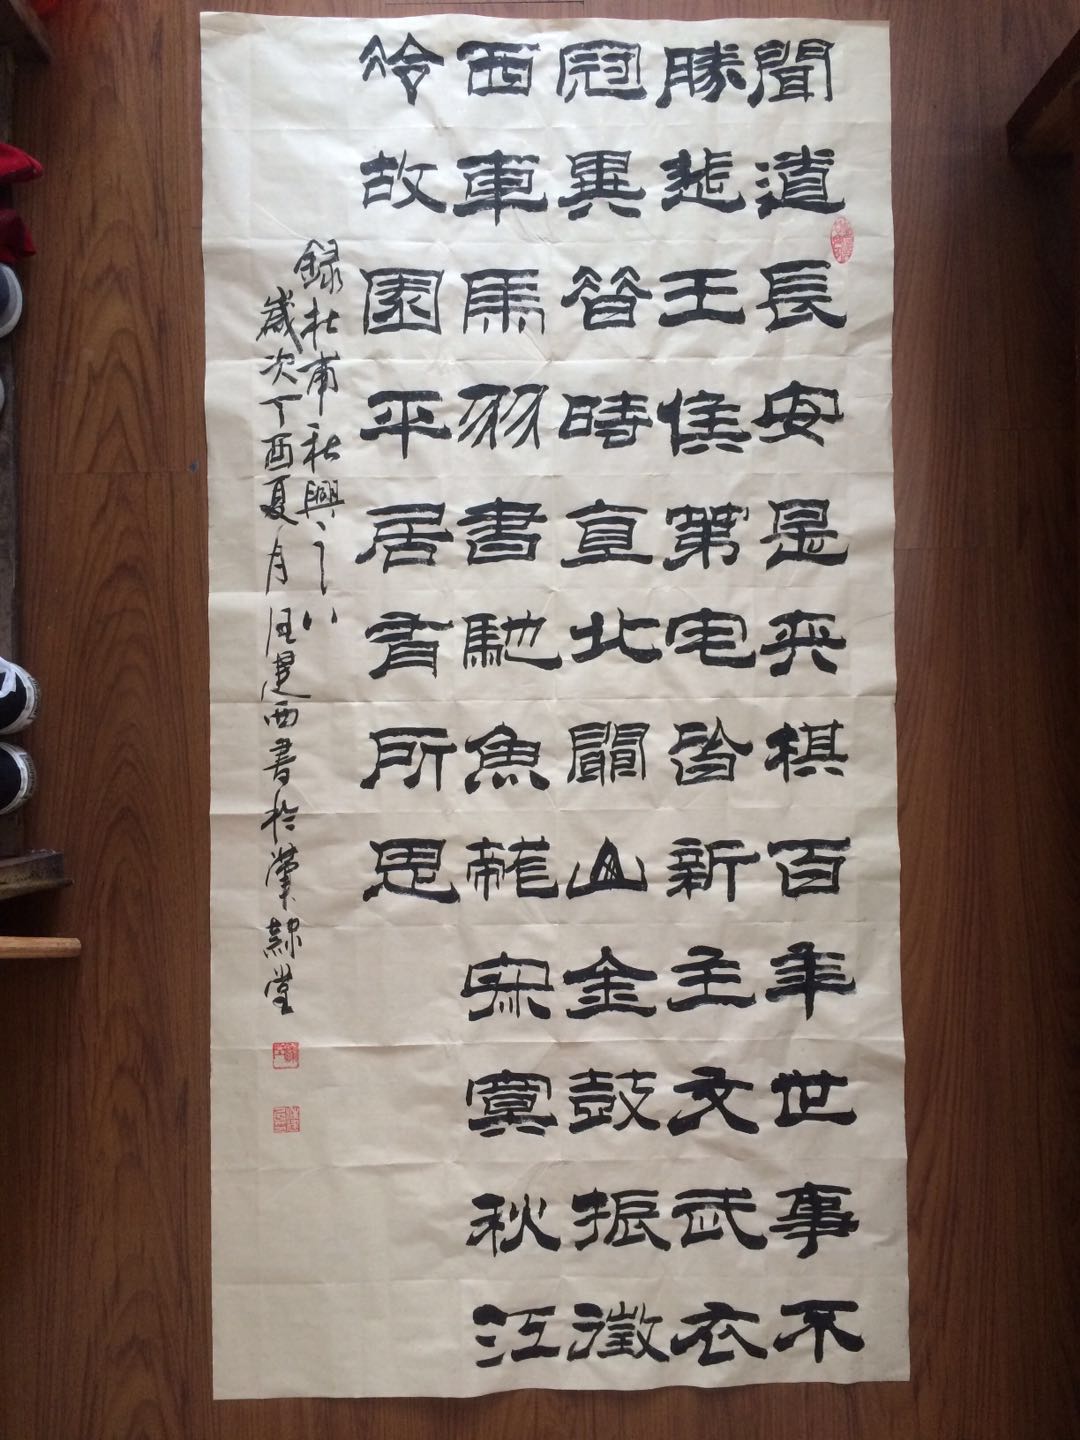 聞道長安是奕棋百年世事不
勝悲王侯第宅皆新主文武衣
冠異昔時直北關山金鼓振徵
西車馬羽書馳魚龍寂寞秋江
冷故園平居有所思
錄杜甫秋興之八
歲次丁酉夏月汪建西書於漢隸堂